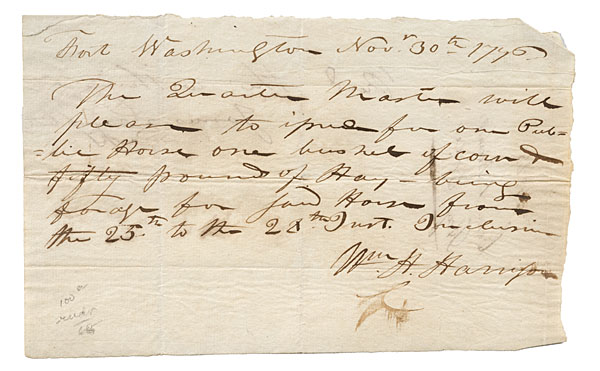 Fort Washington Novr. 30th 1796
The Quarter Master will
please to issue for one Pub-
-lic Horse one bushel of corn &
fifty pounds of Hay - being
forage for said Horse from
the 25th to the 28th Inst. Inclusive
Wm. H. Harrison
100